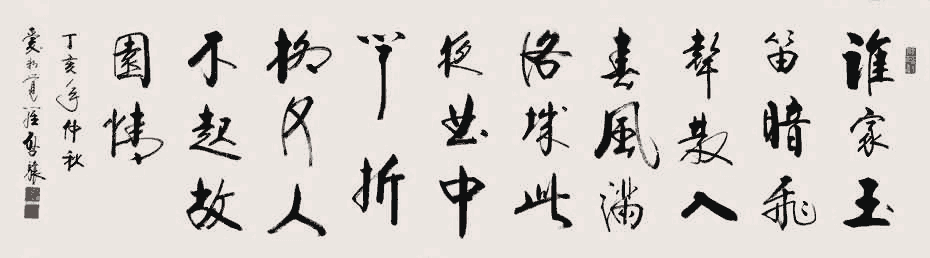 誰家玉
笛暗飛
聲散入
春風滿
洛城此
夜曲中
聞折
柳何人
不起故
園情
丁亥年仲秋
愛新覺羅啓驤